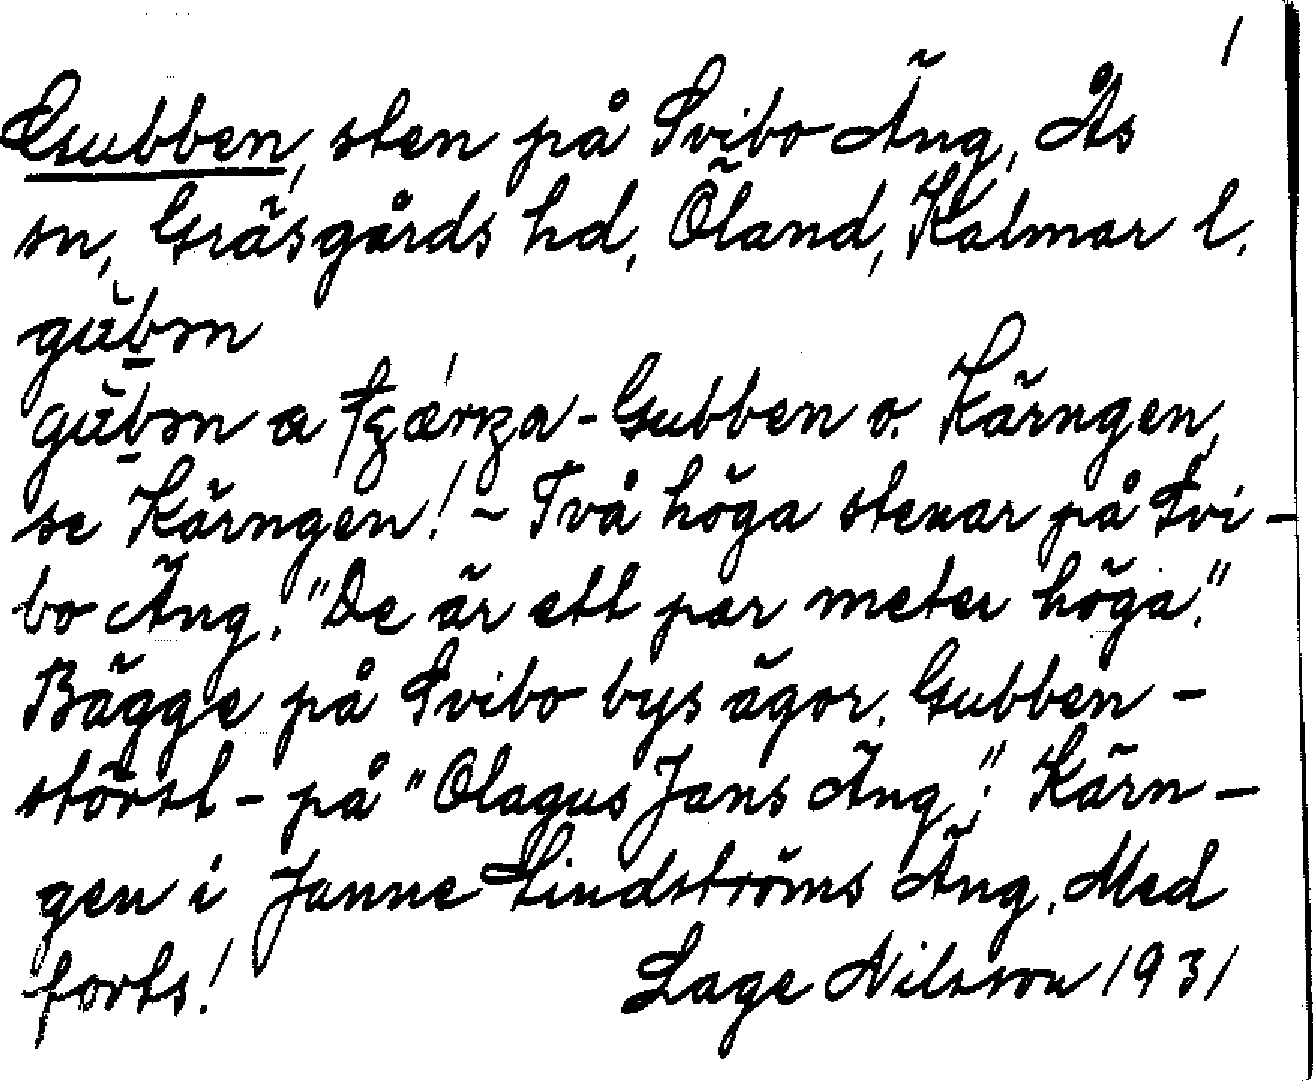 1
Gubben, sten på Tvibo Äng, Ås
sn, Gräsgårds hd, Öland, Kalmar l.
Gubben o. Kärngen,
se Kärngen! - Två höga stenar på Tvi-
bo Äng. "De är ett par meter höga."
Bägge på Tvibo bys ägor. Gubben -
störst - på "Olagus Jans Äng". Kärn-
gen i Janne Lindströms Äng. Med
forts! Lage Nilsson 1931